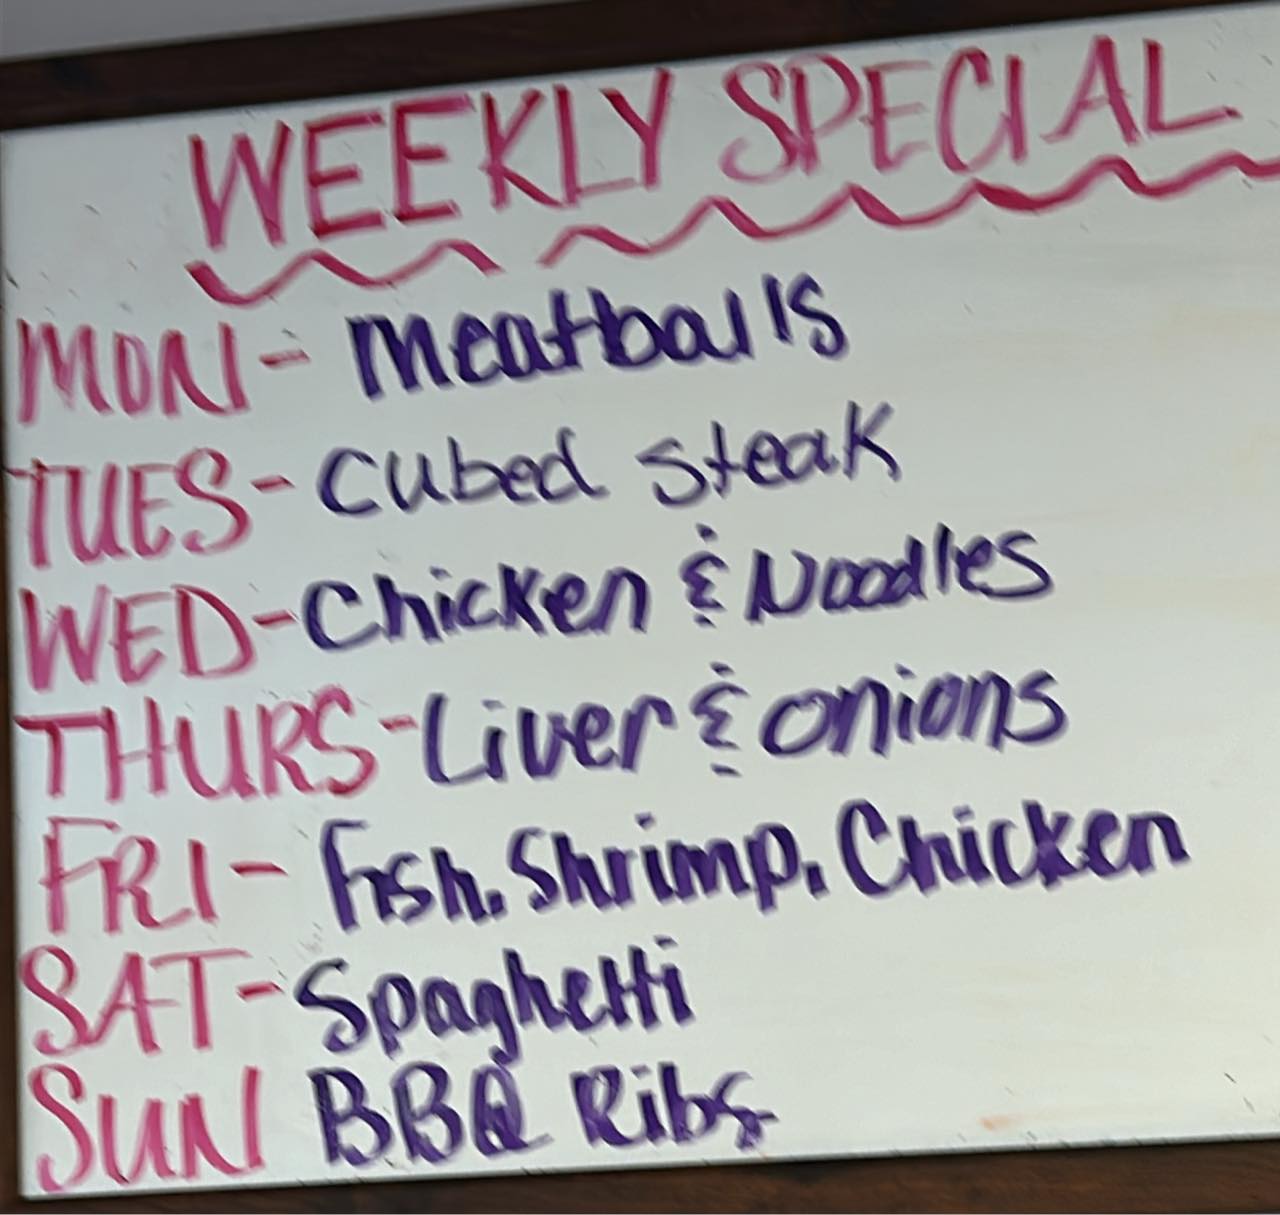 WEEKLY SPECIAL
MON- Meatballs
TUES- Cubed Steak
WED- Chicken & Noodles
THURS- Liver & onions
FRI- Fish, Shrimp, Chicken
SAT- Spaghetti
SUN BBQ Ribs